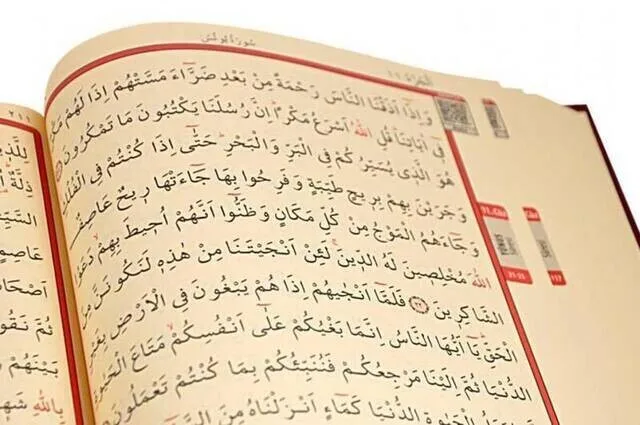 سُورَةُ يُونُسَ
اَلْجُزْءُ ١١
وَاِذَٓا اَذَقْنَا النَّاسَ رَحْمَةً مِنْ بَعْدِ ضَرَّٓاءَ مَسَّتْهُمْ اِذَا لَهُمْ
فِٓي اٰيَاتِنَا قُلِ اللّٰهُ اَسْرَعُ مَكْرًا اِنَّ رُسُلَنَا يَكْتُبُونَ مَا تَمْكُرُونَ
هُوَ الَّذِي يُسَيِّرُكُمْ فِي الْبَرِّ وَالْبَحْرِ حَتّٰٓى اِذَا كُنْتُمْ فِي الْفُلْكِ
وَجَرَيْنَ بِهِمْ بِرِيحٍ طَيِّبَةٍ وَفَرِحُوا بِهَا جَٓاءَتْهَا رِيحٌ عَاصِفٌ
وَجَٓاءَهُمُ الْمَوْجُ مِنْ كُلِّ مَكَانٍ وَظَنُّٓوا اَنَّهُمْ اُحِيطَ بِهِمْ دَعَوُا
اللّٰهَ مُخْلِصِينَ لَهُ الدِّينَ لَئِنْ اَنْجَيْتَنَا مِنْ هٰذِهِ لَنَكُونَنَّ مِنَ
الشَّاكِرِينَ ٢٢ فَلَمَّٓا اَنْجٰيهُمْ اِذَا هُمْ يَبْغُونَ فِي الْاَرْضِ بِغَيْرِ
الْحَقِّ يَٓا اَيُّهَا النَّاسُ اِنَّمَا بَغْيُكُمْ عَلٰٓى اَنْفُسِكُمْ مَتَاعَ الْحَيٰوةِ
الدُّنْيَا ثُمَّ اِلَيْنَا مَرْجِعُكُمْ فَنُنَبِّئُكُمْ بِمَا كُنْتُمْ تَعْمَلُونَ
الْحَيٰوةِ الدُّنْيَا كَمَٓاءٍ اَنْزَلْنَاهُ مِنَ
٢١١
لِلَّذِينَ
ذِلَّةٌ
عَاصِمٍ
ثُمَّ نَقُو
بَيْنَهُمْ
بِاللّٰهِ